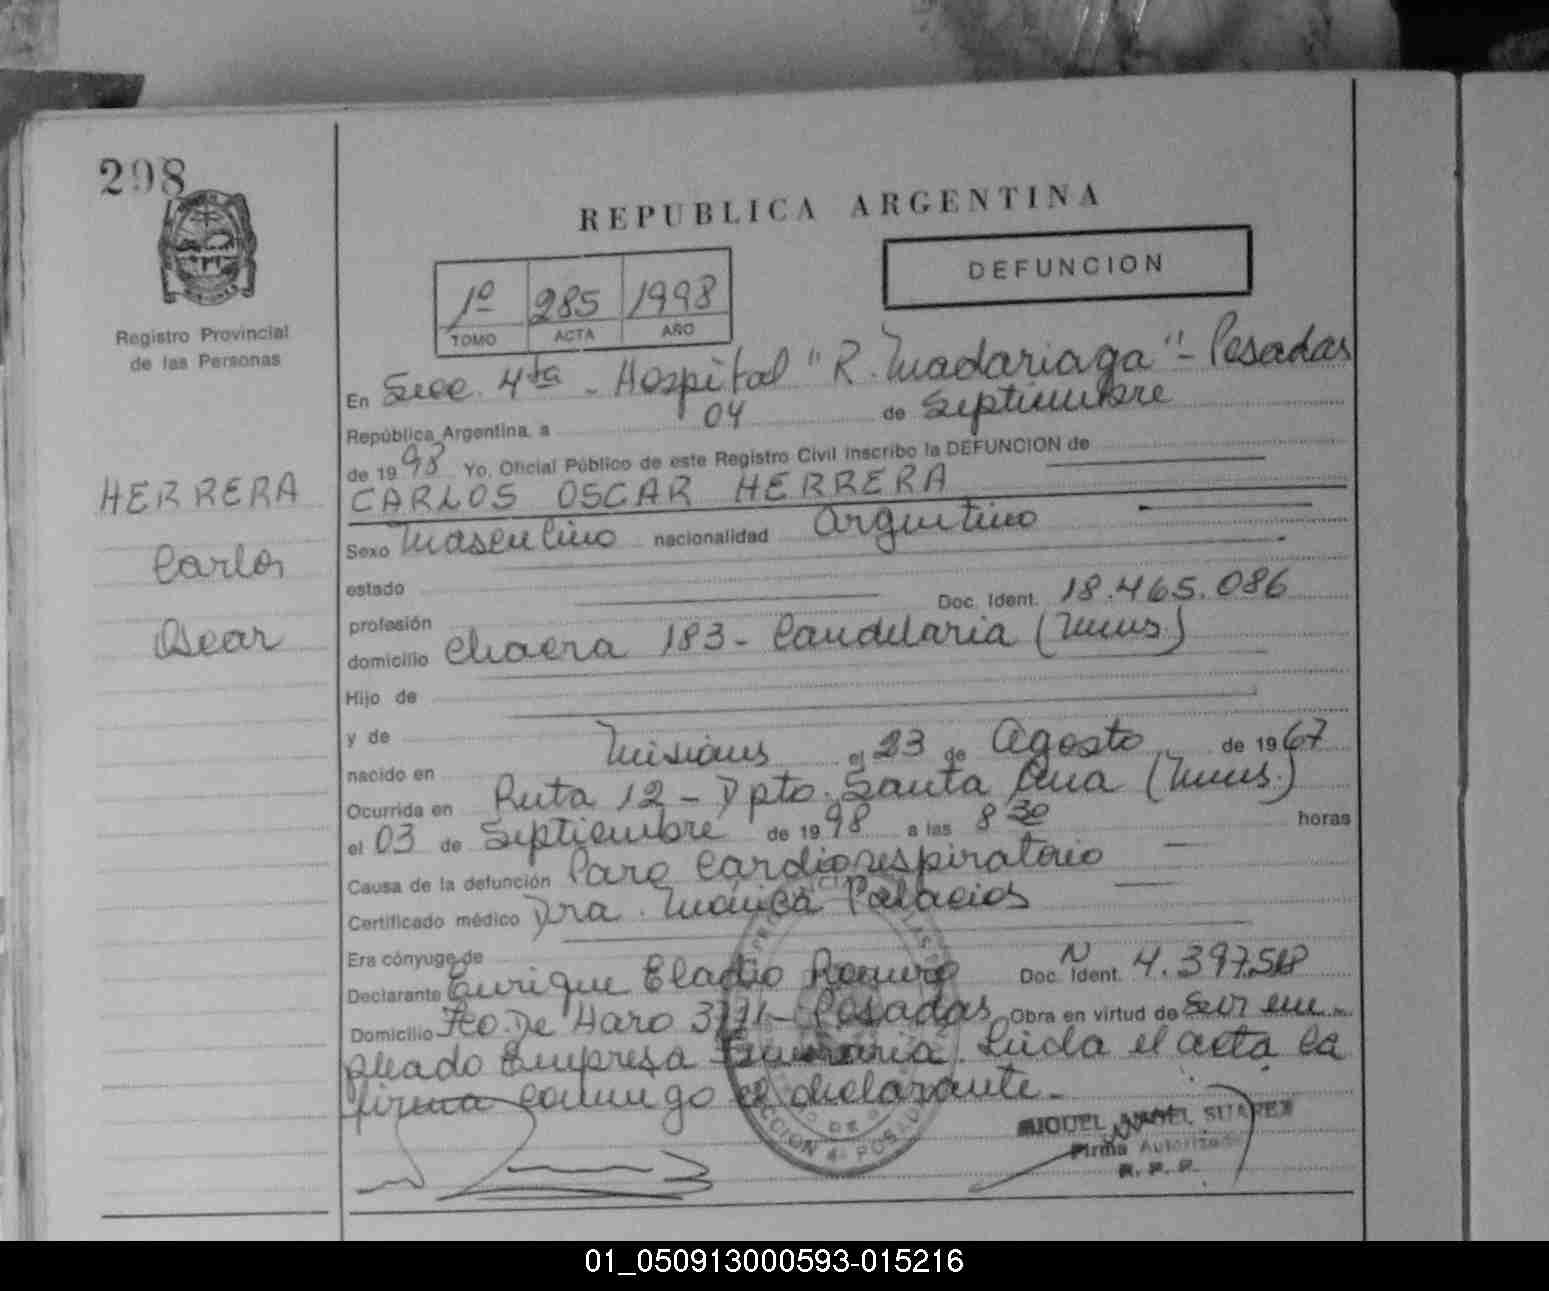 298
Registro Provincial
de las Personas
HERRERA
Carlos
Oscar
REPUBLICA ARGENTINA
DEFUNCION
1º 285 1998
TOMO ACTA AÑO
En Secc. 4ta - Hospital "R. Madariaga" - Posadas
República Argentina, a 04 de Septiembre
de 1998 Yo, Oficial Público de este Registro Civil inscribo la DEFUNCION de
CARLOS OSCAR HERRERA
Sexo Masculino nacionalidad Argentino
estado
profesión Doc. Ident. 18.465.086
domicilio Chacra 183 - Candelaria (Mnes.)
Hijo de
y de
nacido en Misiones el 23 de Agosto de 1967
Ocurrida en Ruta 12 - Dpto. Santa Ana (Mnes.)
el 03 de Septiembre de 1998 a las 8 30 horas
Causa de la defunción Paro Cardiorespiratorio
Certificado médico Dra. Mónica Palacios
Era cónyuge de
Declarante Enrique Eladio Romero Doc. Ident. N 4.397.518
Domicilio Fco. De Haro 3171 - Posadas Obra en virtud de Ser em
pleado Empresa Funeraria. Leída el acta la
firma conmigo el declarante.-
SECCION 4ª POSADAS
MIGUEL ANGEL SUAREZ
Firma Autorizada
R. P. P.
01_050913000593-015216